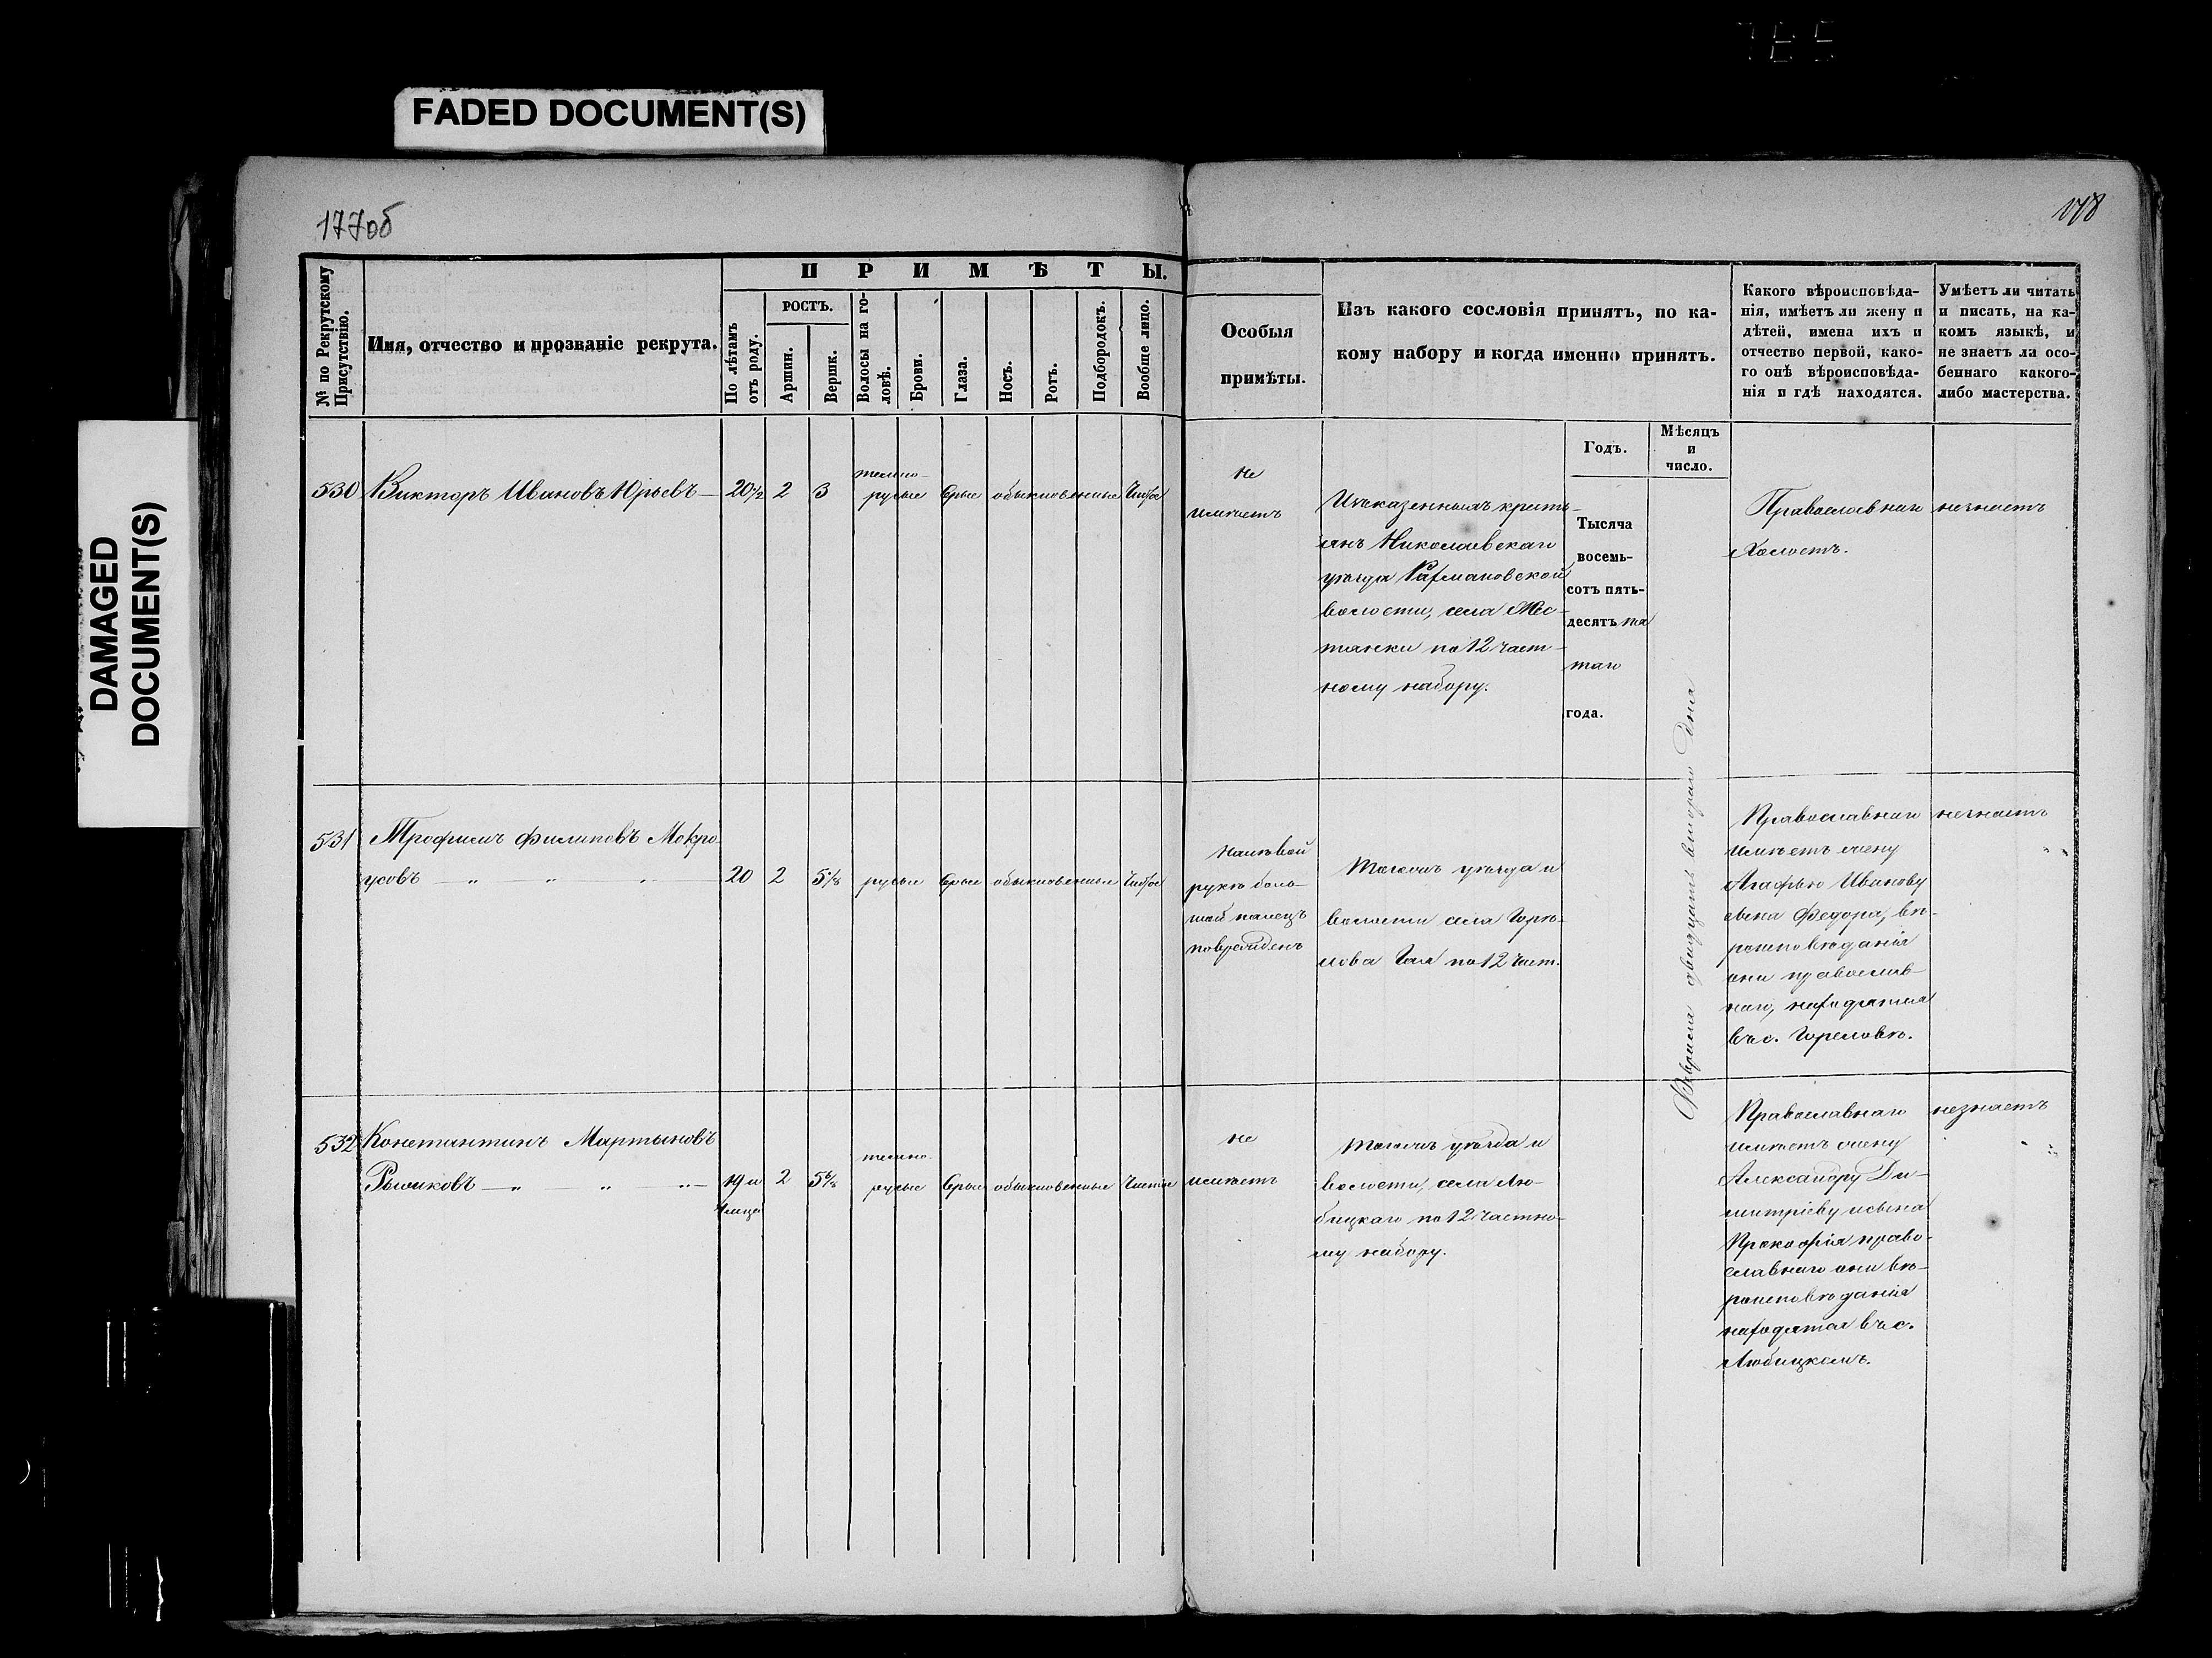 FADED DOCUMENT(S)
DAMAGED
DOCUMENT(S)
177об
178
№ по Рекрутскому
Присутствію.
Имя, отчество и прозваніе рекрута.
ПРИМѢТЫ.
По лѣтамъ
отъ роду.
РОСТЪ.
Аршин.
Вершк.
Волосы на го-
ловѣ.
Брови.
Глаза.
Носъ.
Ротъ.
Подбородокъ.
Вообще лицо.
Особыя
примѣты.
Изъ какого сословія принятъ, по ка-
кому набору и когда именно принятъ.
Какого вѣроисповѣда-
нія, имѣетъ ли жену и
дѣтей, имена ихъ и
отчество первой, како-
го онѣ вѣроисповѣда-
нія и гдѣ находятся.
Умѣетъ ли читать
и писать, на ка-
комъ языкѣ, и
не знаетъ ли осо-
беннаго какого-
либо мастерства.
Годъ.
Мѣсяцъ
и
число.
530 Викторъ Ивановъ Юрьевъ — 20½ 2 3
темно-
русые сѣрые обыкновенные
не
имѣетъ
Изъ казенныхъ кресть-
янъ Николаевскаго
уѣзда Рахмановской
волости, села Мес-
тянки по 12 част-
ному набору.
Тысяча
восемь-
сотъ пять-
десятъ пя
таго
года.
Февраля двадцать втораго дня
Православнаго
Холостъ.
незнаетъ
531 Трофимъ Филиповъ Мокро-
усовъ — „ „ „ — 20 2 5⅛ русые сѣрые обыкновенные
На лѣвой
рукѣ боль-
шой палецъ
поврежденъ
Тогожъ уѣзда и
волости села Горѣ-
лова Гая по 12 част.
Православнаго
имѣетъ жену
Агафью Иванову
сына Федора, вѣ-
роисповѣданія
они православ-
наго, находятся
въ с. Гореловѣ.
незнаетъ
532 Константинъ Мартыновъ
Рыжковъ — „ „ „ — 19 и 2 5⁶⁄₈
темно-
русые сѣрые обыкновенные чистое
не
имѣетъ
Тогожъ уѣзда и
волости, села Лю-
бицкаго по 12 частно-
му набору.
Православнаго
имѣетъ жену
Александру Ди-
митріеву и сына
Прокофія право-
славнаго они вѣ-
роисповѣданія
находятся въ с.
Любицкомъ.
незнаетъ